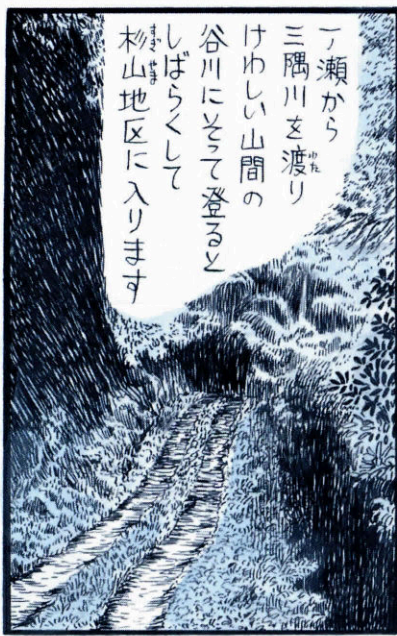 一ノ瀬から
三隅川を渡り
けわしい山間の
谷川にそって登ると
しばらくして
杉山地区に入ります